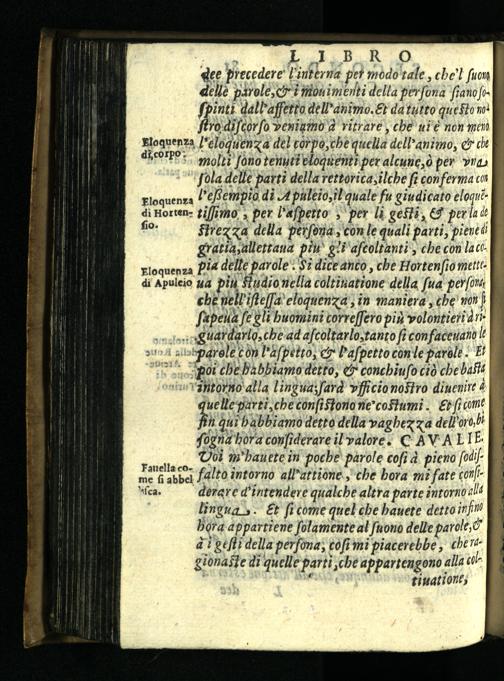 LIBRO
dee precedere l'interna per modo tale, che'l suono
delle parole, & i mouimenti della persona siano so-
spinti dall'affetto dell'animo. Et da tutto questo no-
stro discorso veniamo à ritrare, che ui è non meno
Eloquenza
di corpo.
l'eloquenza del corpo, che quella dell'animo, & che
molti sono tenuti eloquenti per alcune, ò per vna
sola delle parti della rettorica, ilche si conferma con
Eloquenza
di Horten-
sio.
l'essempio di Apuleio, il quale fu giudicato eloquē-
tissimo, per l'aspetto, per li gesti, & per la de
strezza della persona, con le quali parti, piene di
gratia, allettaua piu gli ascoltanti, che con la co-
pia delle parole. Si dice anco, che Hortensio mette-
Eloquenza
di Apuleio
ua più studio nella coltiuatione della sua persona,
che nell'istessa eloquenza, in maniera, che non si
sapeua se gli huomini corressero più volontieri à ri-
guardarlo, che ad ascoltarlo, tanto si confaceuano le
parole con l'aspetto, & l'aspetto con le parole. Et
poi che habbiamo detto, & conchiuso ciò che basta
intorno alla lingua; sarà vfficio nostro diuenire à
quelle parti, che consistono ne' costumi. Et si come
fin qui habbiamo detto della vaghezza dell'oro, bi
sogna hora considerare il valore. CAVALIE.
Voi m'hauete in poche parole così à pieno sodis-
Fauella co-
me si abbel
lisca.
fatto intorno all'attione, che hora mi fate consi-
derare d'intendere qualche altra parte intorno alla
lingua. Et si come quel che hauete detto infino
hora appartiene solamente al suono delle parole, &
à i gesti della persona, così mi piacerebbe, che ra-
gionaste di quelle parti, che appartengono alla col-
tiuatione,